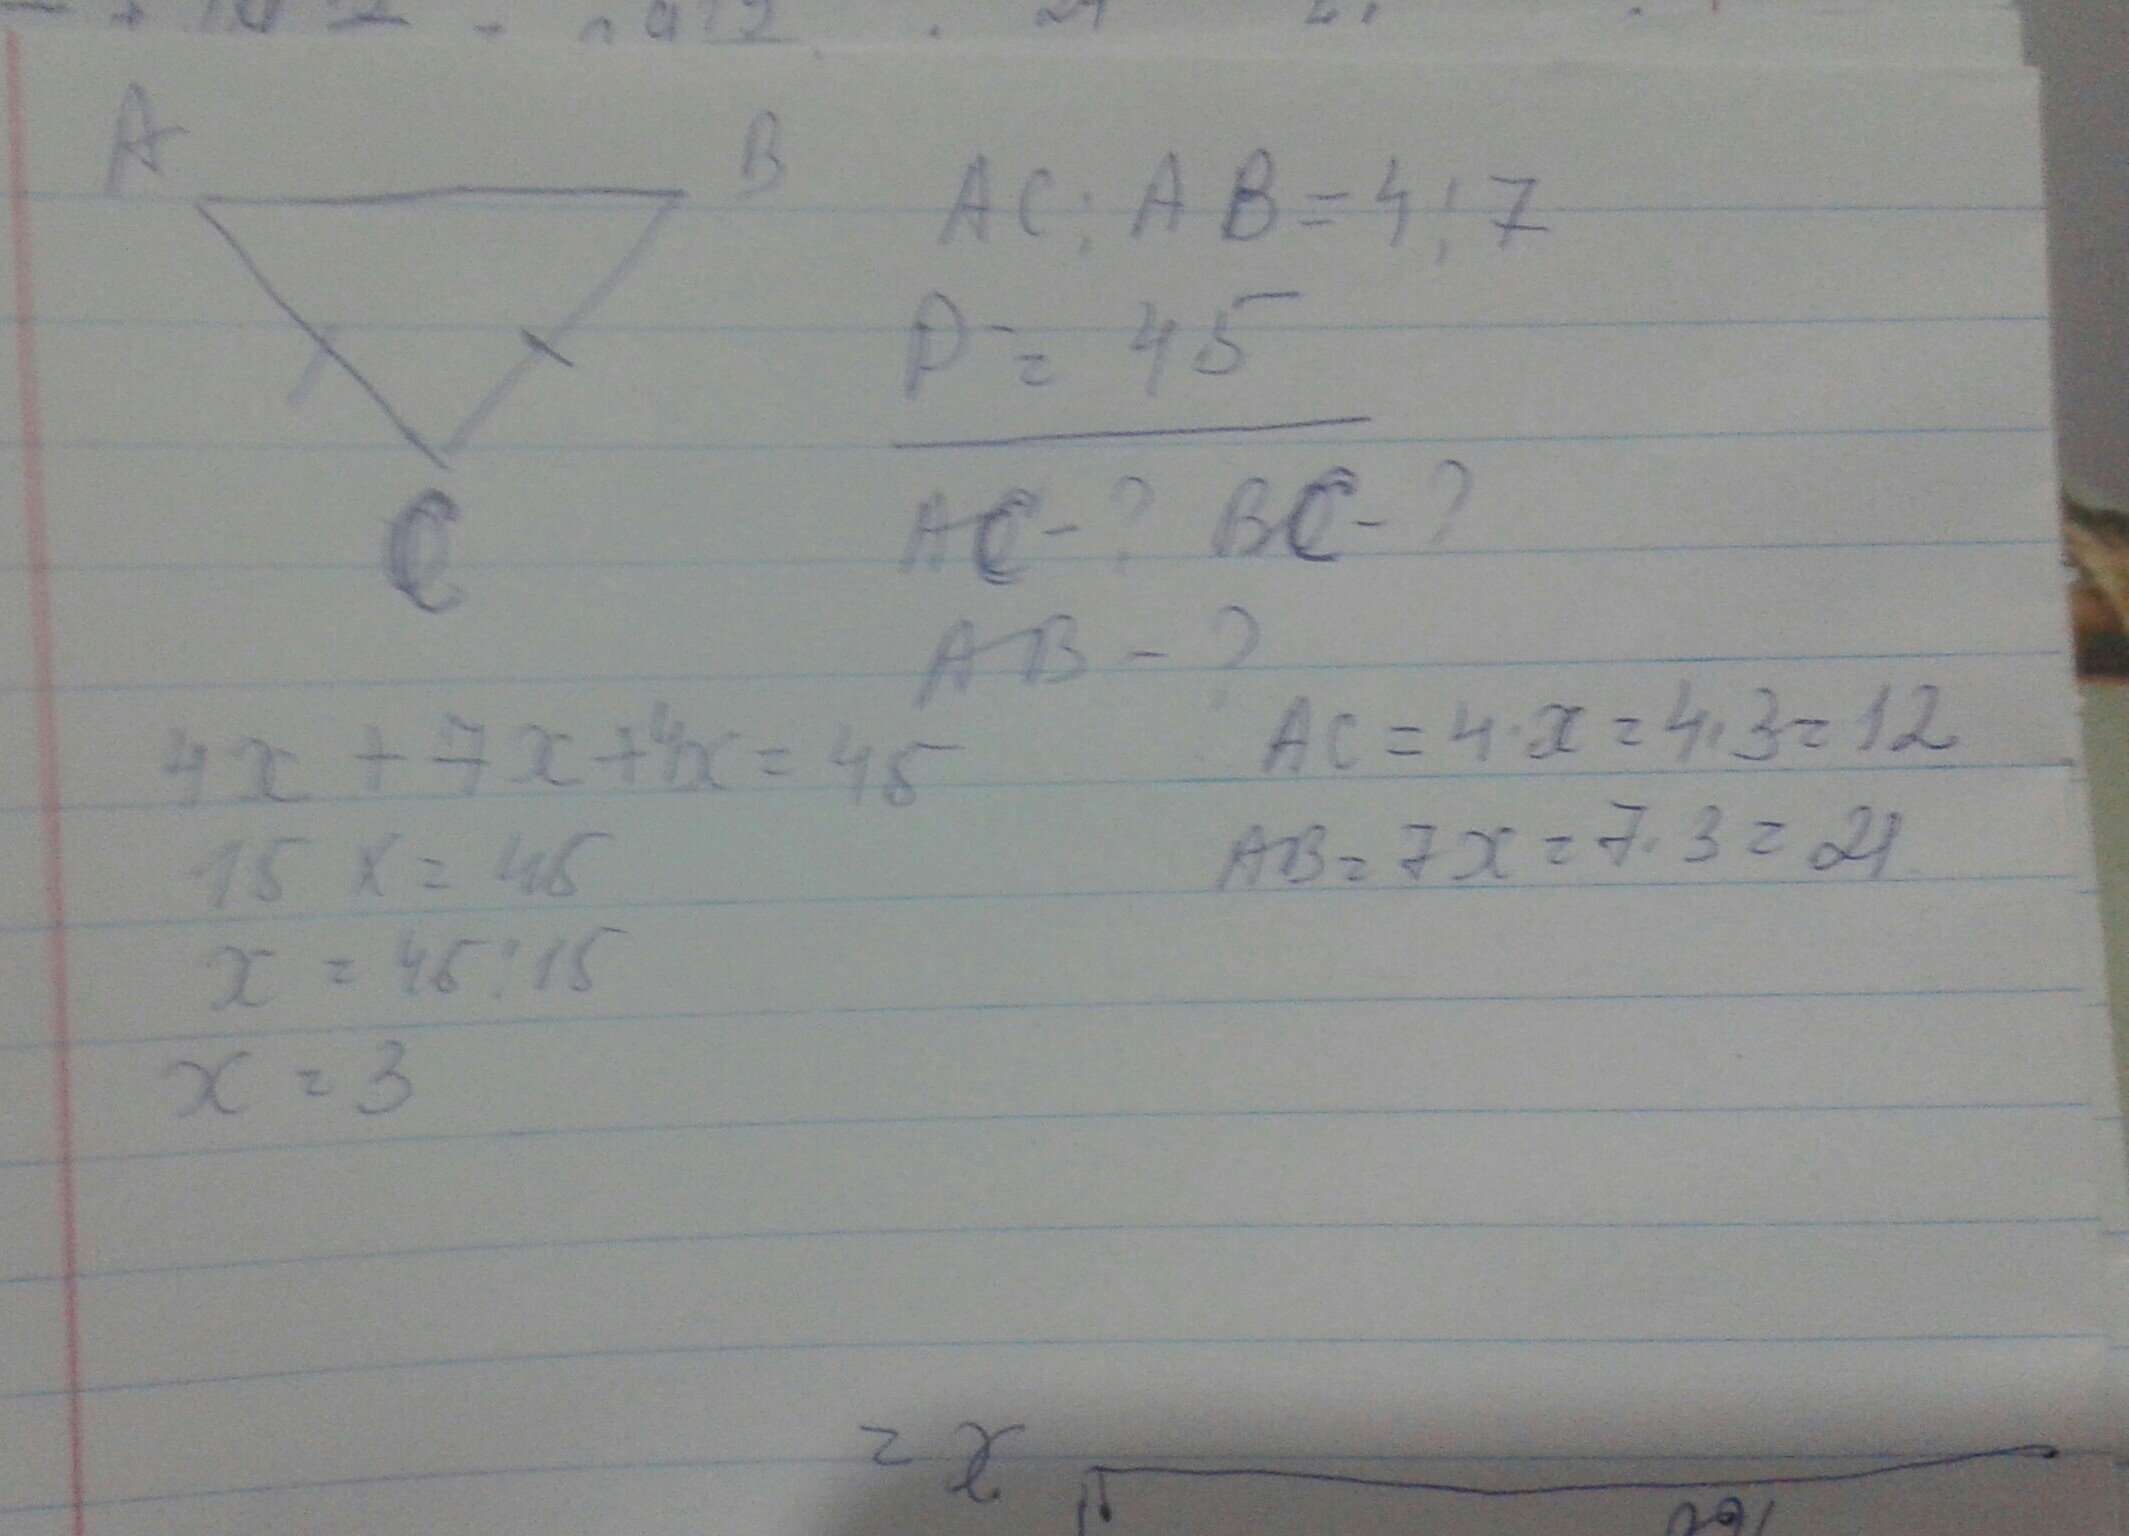 A
B
C
AC : AB = 4 : 7
P = 45
AC - ? BC - ?
AB - ?
4x + 7x + 4x = 45
15 x = 45
x = 45 : 15
x = 3
AC = 4 · x = 4 · 3 = 12
AB = 7x = 7 · 3 = 21
= x